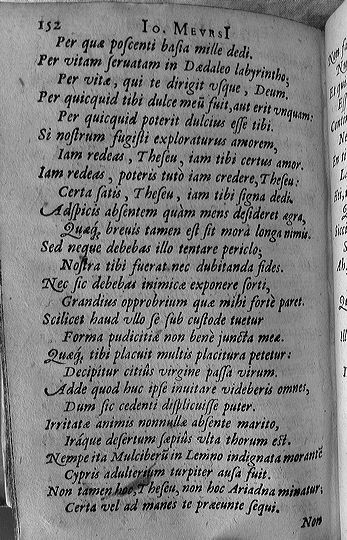 152 IO. MEVRSI
Per quæ poscenti basia mille dedi.
Per vitam seruatam in Dædaleo labyrintho;
Per vitæ, qui te dirigit vsque, Deum.
Per quicquid tibi dulce meũ fuit, aut erit vnquam:
Per quicquid poterit dulcius esse tibi.
Si nostrum fugisti exploraturus amorem,
Iam redeas, Theseu, iam tibi certus amor.
Iam redeas, poteris tuto iam credere, Theseu:
Certa satis, Theseu, iam tibi signa dedi.
Adspicis absentem quàm mens desideret ægra,
Quæq; breuis tamen est sit mora longa nimis.
Sed neque debebas illo tentare periclo;
Nostra tibi fuerat nec dubitanda fides.
Nec sic debebas inimicæ exponere sorti,
Grandius opprobrium quæ mihi fortè paret.
Scilicet haud vllo se sub custode tuetur
Forma pudicitiæ non benè juncta meæ.
Quæq; tibi placuit multis placitura petetur:
Decipitur citiùs virgine passa virum.
Adde quod huc ipse inuitare videberis omnes,
Dum sic cedenti displicuisse puter.
Irritatæ animis nonnullæ absente marito,
Iráque desertum sæpiùs vlta thorum est.
Nempe ita Mulciberũ in Lemno indignata morantẽ
Cypris adulterium turpiter ausa fuit.
Non tamen hoc, Theseu, non hoc Ariadna minatur;
Certa vel ad manes te præeunte sequi.
Non